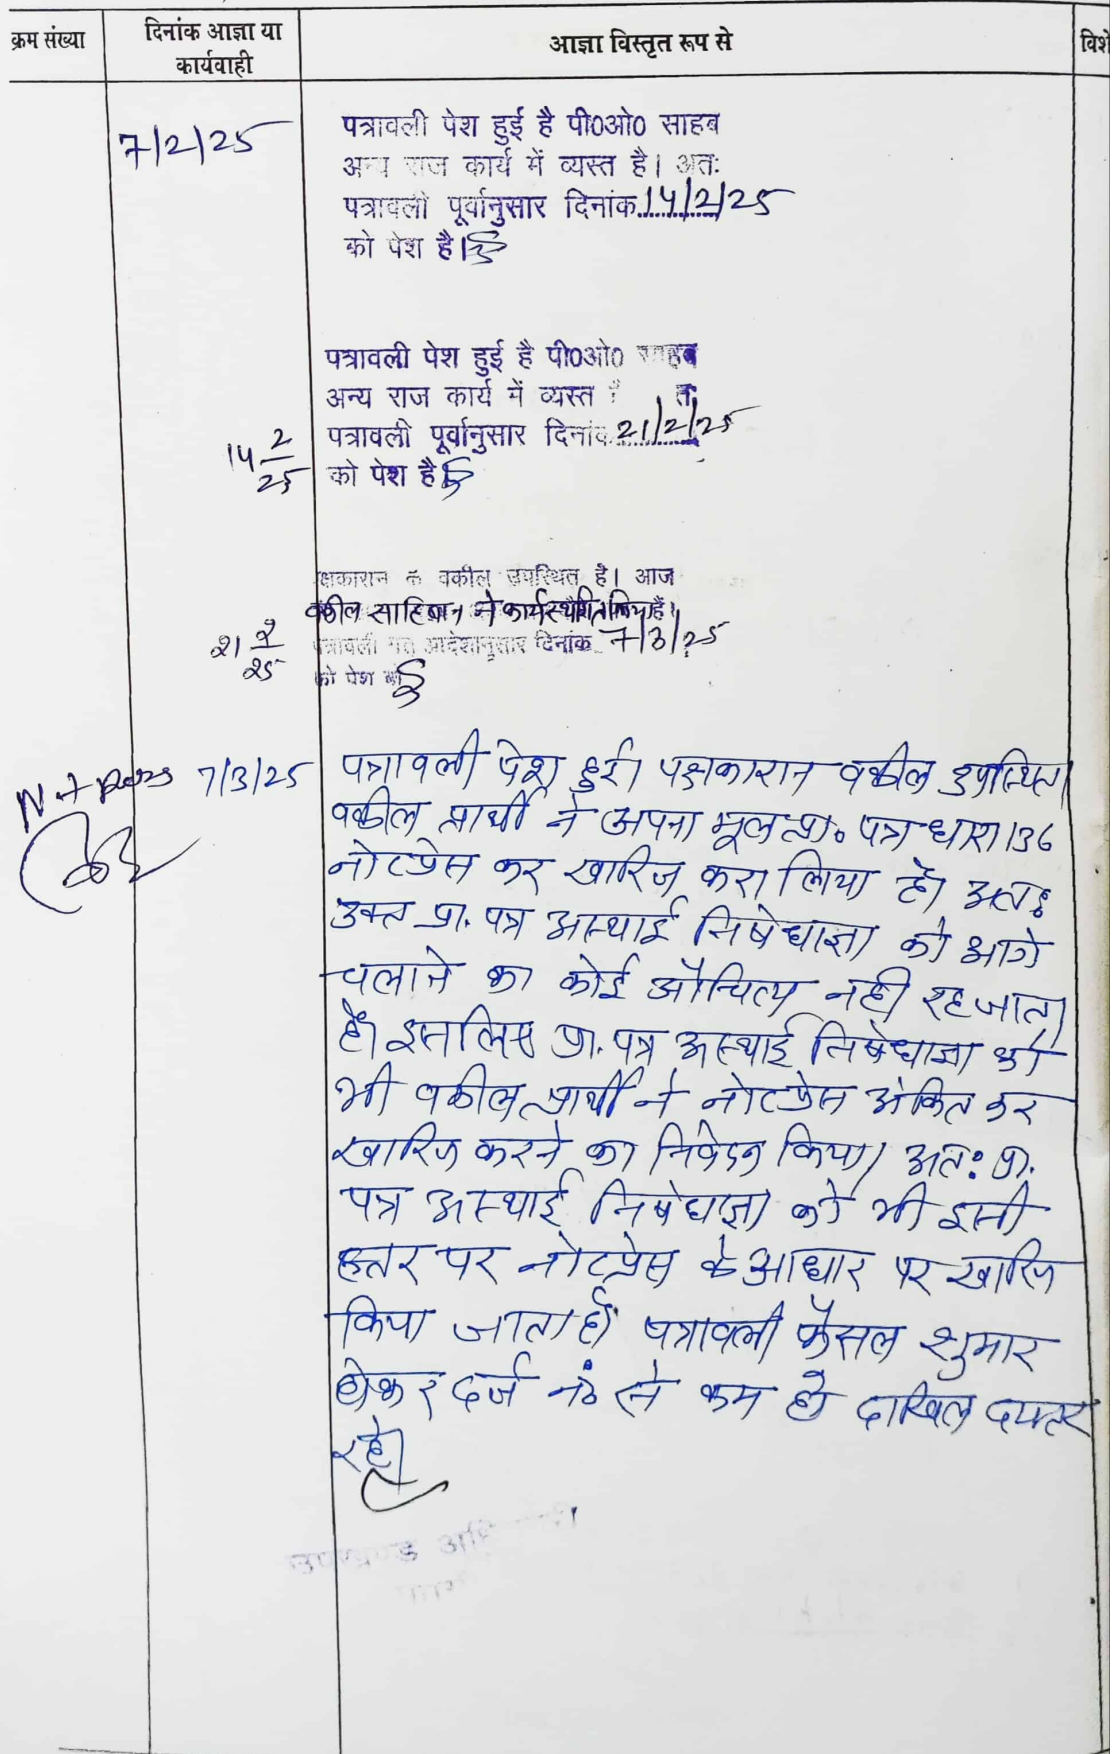 क्रम संख्या
दिनांक आज्ञा या
कार्यवाही
आज्ञा विस्तृत रूप से
विशे
7/2/25
पत्रावली पेश हुई है पी0ओ0 साहब
अन्य राज कार्य में व्यस्त है। अतः
पत्रावली पूर्वानुसार दिनांक 14/2/25
को पेश है।
पत्रावली पेश हुई है पी0ओ0 साहब
अन्य राज कार्य में व्यस्त
पत्रावली पूर्वानुसार दिनांक 21/2/25
14 2/25
को पेश है
पक्षकारान के वकील उपस्थित है। आज
वकील साहिबान ने कार्य स्थगित किया है।
21 2/25
पत्रावली गत आदेशानुसार दिनांक 7/3/25
को पेश
Not press
7/3/25
पत्रावली पेश हुई। पक्षकारान वकील उपस्थित।
वकील प्रार्थी ने अपना मूल प्रा. पत्र धारा 136
नोटप्रेस कर खारिज करा लिया है। अतः
उक्त प्रा. पत्र अस्थाई निषेधाज्ञा को आगे
चलाने का कोई औचित्य नही रह जाता
है। इसलिए प्रा. पत्र अस्थाई निषेधाज्ञा को
भी वकील प्रार्थी ने नोटप्रेस अंकित कर
खारिज करने का निवेदन किया। अतः प्रा.
पत्र अस्थाई निषेधाज्ञा को भी इसी
स्तर पर नोटप्रेस के आधार पर खारिज
किया जाता है। पत्रावली फैसल शुमार
होकर दर्ज नं. से कम हो दाखिल दफ्तर
रहे।
उपखण्ड